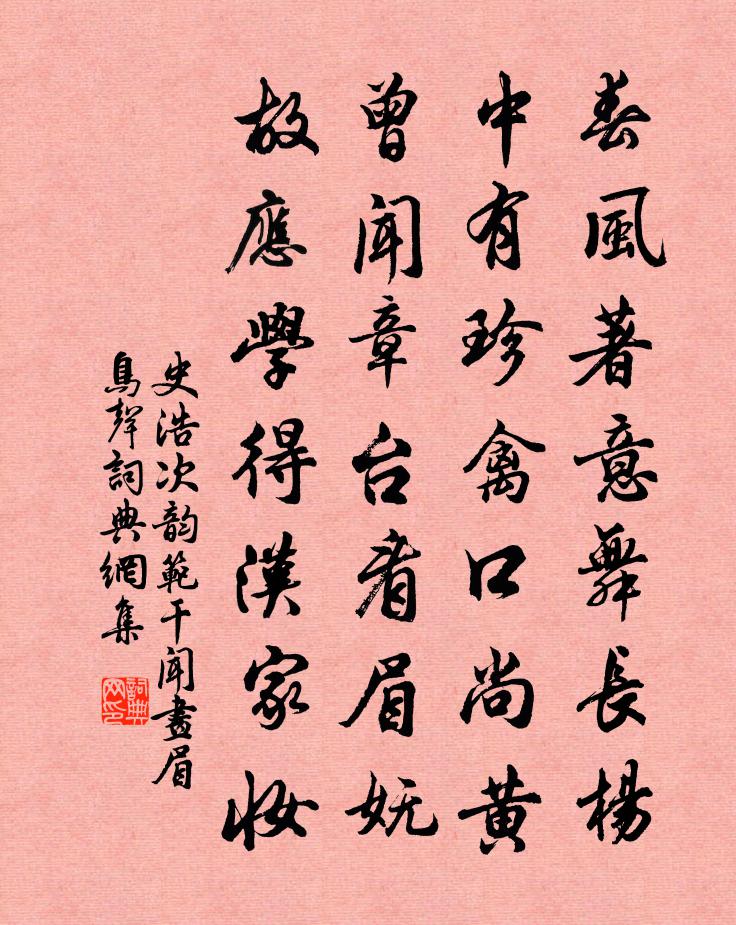 春風著意舞長楊
中有珍禽口尚黄
曾聞章台看眉妩
故應學得漢家妝
史浩次韵範干闻畫眉
鳥聲詞典網集
詞典
网印